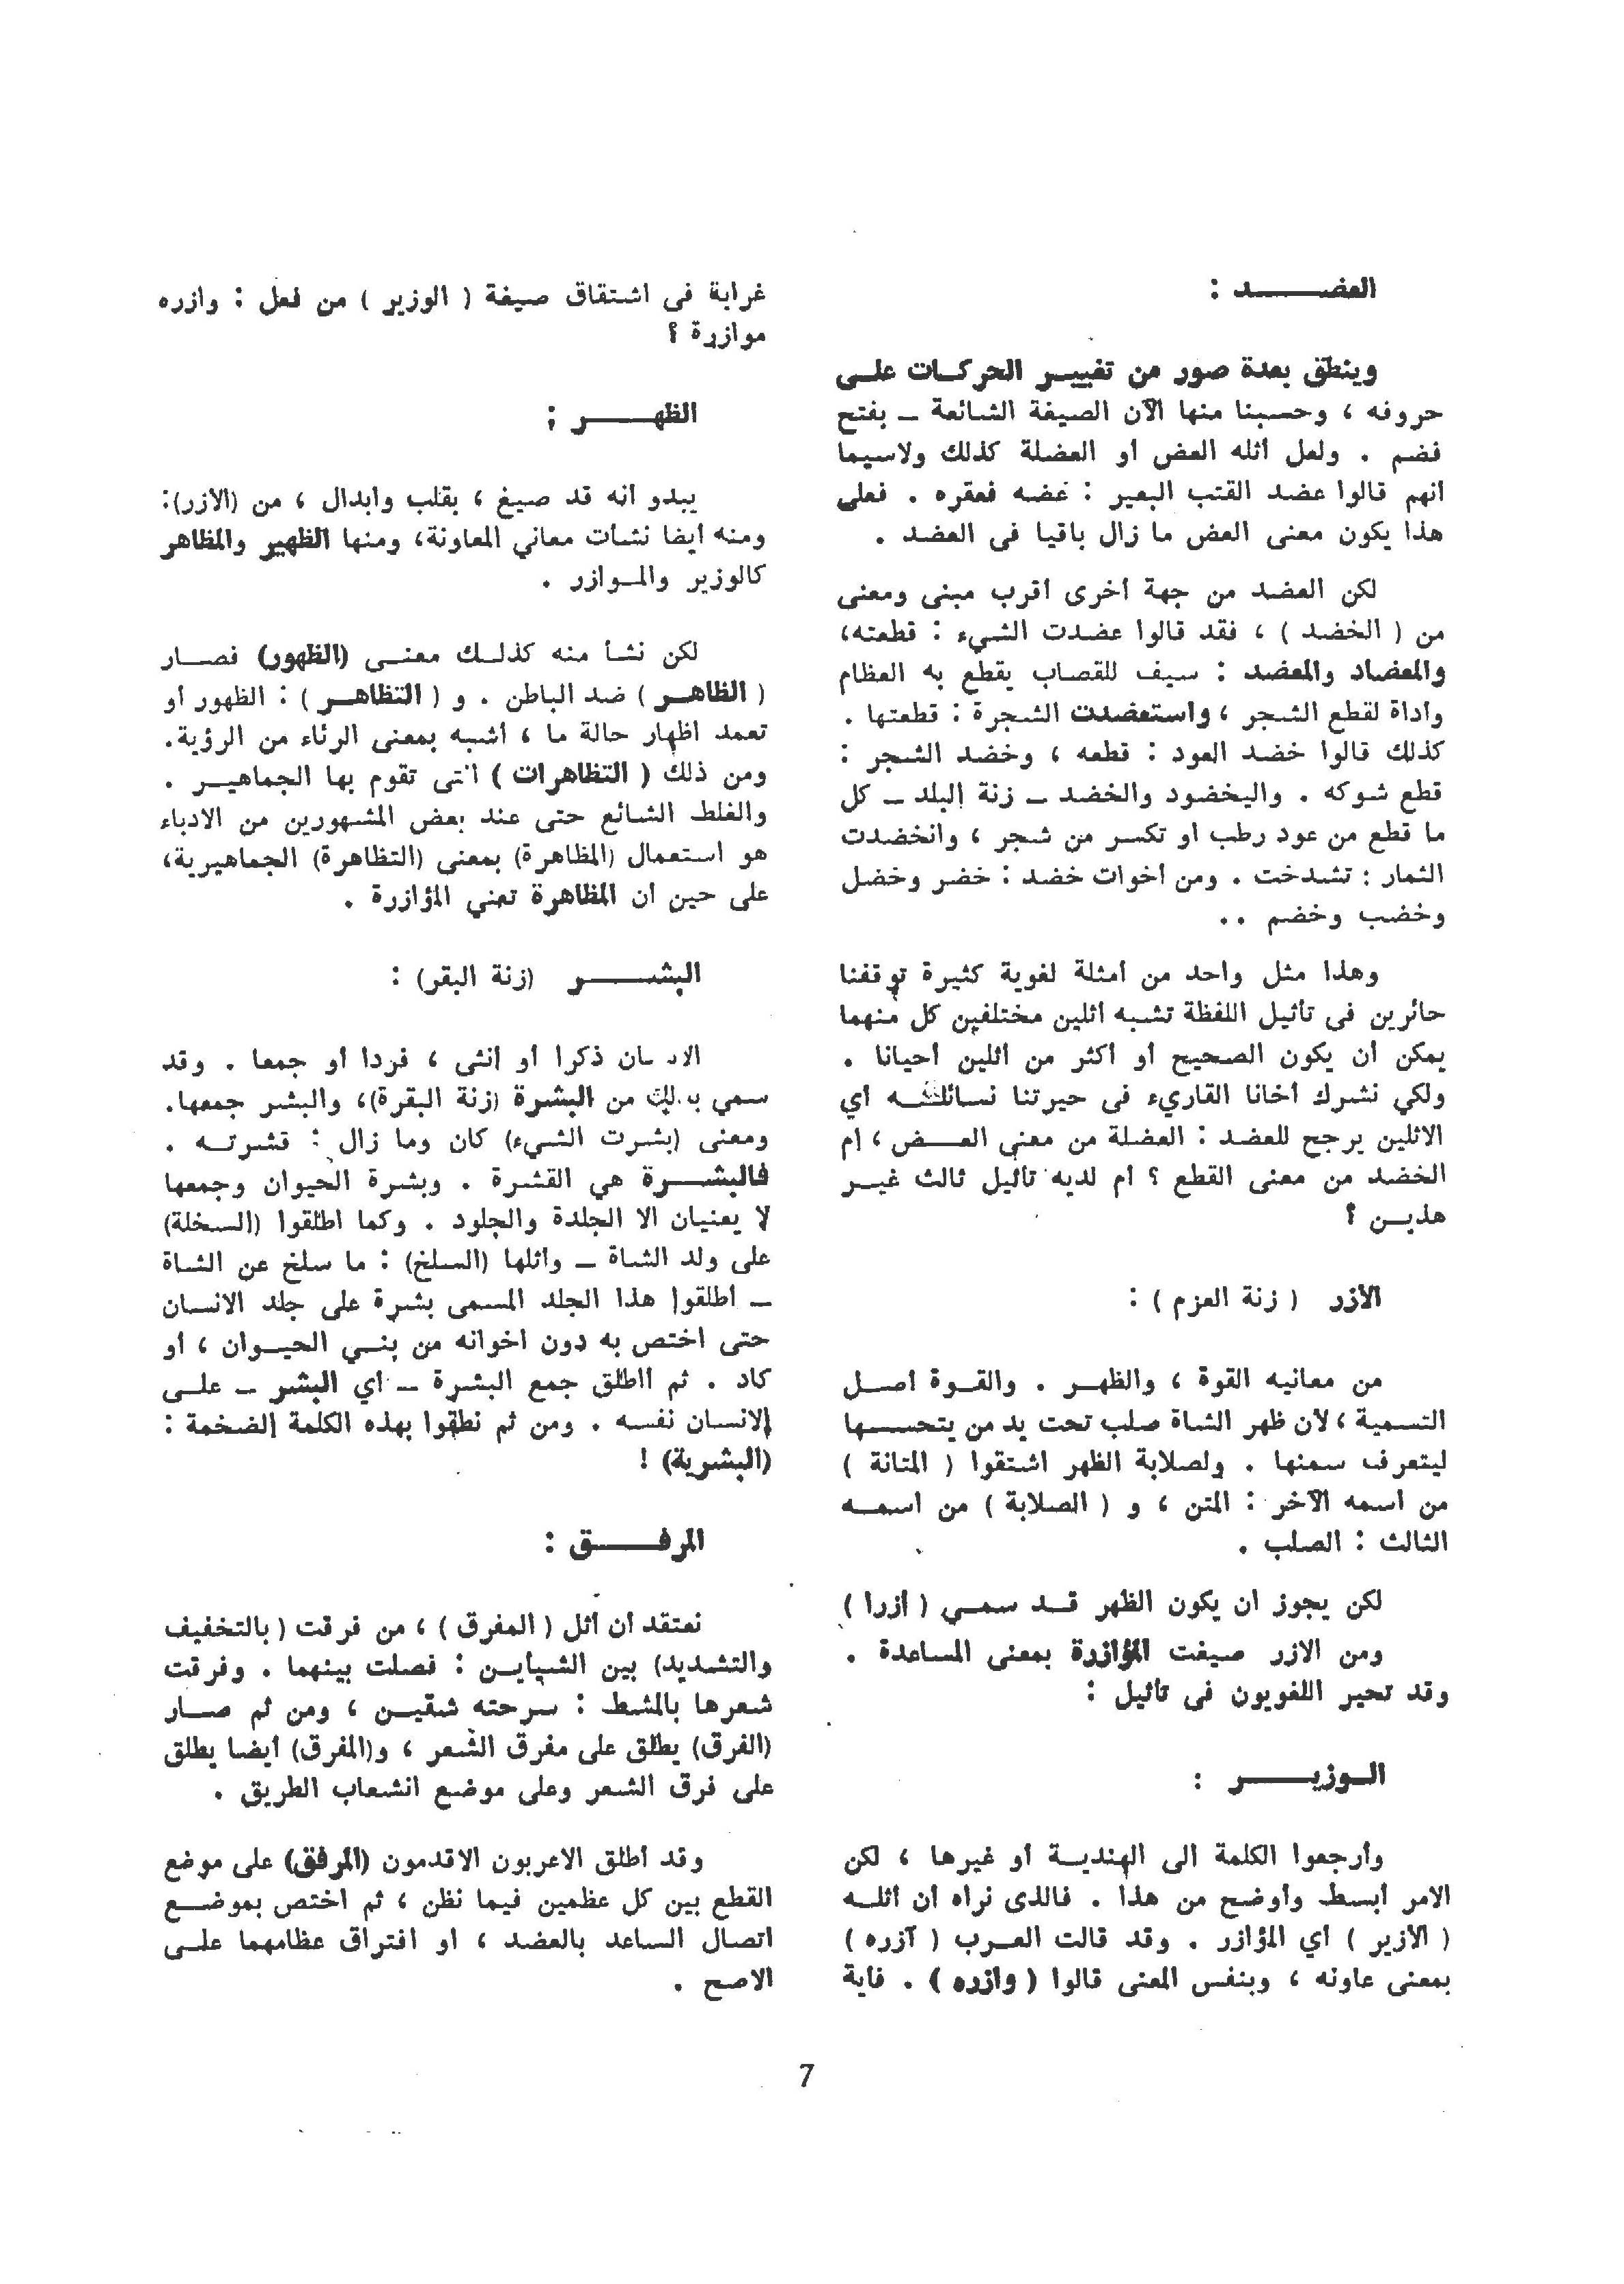 العضـــــد :
وينطق بعدة صور من تغييـر الحركـات علـى
حروفه ، وحسبنا منها الآن الصيغة الشائعة ــ بفتح
فضم . ولعل أثله العض أو العضلة كذلك ولاسيما
انهم قالوا عضد القتب البعير : عضه فعقره . فعلى
هذا يكون معنى العض ما زال باقيا فى العضد .
لكن العضد من جهة أخرى أقرب مبنى ومعنى
من ( الخضد ) ، فقد قالوا عضدت الشيء : قطعته،
والمعضاد والمعضد : سيف للقصاب يقطع به العظام
وأداة لقطع الشجر ، واستعضدت الشجرة : قطعتها .
كذلك قالوا خضد العود : قطعه ، وخضد الشجر :
قطع شوكه . واليخضود والخضد ــ زنة البلد ــ كل
ما قطع من عود رطب أو تكسر من شجر ، وانخضدت
الثمار : تشدخت . ومن أخوات خضد : خضر وخضل
وخضب وخضم . .
وهذا مثل واحد من أمثلة لغوية كثيرة توقفنا
حائرين فى تأثيل اللفظة تشبه أثلين مختلفين كل منهما
يمكن أن يكون الصحيح أو أكثر من أثلين أحيانا .
ولكي نشرك أخانا القاريء فى حيرتنا نسائلـه أي
الاثلين يرجح للعضد : العضلة من معنى العـض ، أم
الخضد من معنى القطع ؟ أم لديه تأثيل ثالث غيـر
هذيـن ؟
الأزر ( زنة العزم ) :
من معانيه القوة ، والظهـر . والقـوة أصـل
التسمية ، لأن ظهر الشاة صلب تحت يد من يتحسـها
ليتعرف سمنها . ولصلابة الظهر اشتقوا ( المتانة )
من اسمه الآخر : المتن ، و ( الصلابة ) من اسمـه
الثالث : الصلب .
لكن يجوز ان يكون الظهر قـد سمـي ( أزرا )
ومن الازر صيغت المؤازرة بمعنى المساعدة .
وقد تحير اللغويون فى تأثيل :
الـوزيـــــر :
وأرجعوا الكلمة الى الهنديـة أو غيرها ، لكن
الامر أبسط وأوضح من هذا . فالذى نراه أن أثلـه
( الأزير ) أي المؤازر . وقد قالت العـرب ( آزره )
بمعنى عاونه ، وبنفس المعنى قالوا ( وازره ) . فأية
غرابة فى اشتقاق صيغة ( الوزير ) من فعل : وازره
موازرة ؟
الظهـــــر :
يبدو انه قد صيغ ، بقلب وابدال ، من (الازر):
ومنه أيضا نشأت معاني المعاونة، ومنها الظهير والمظاهر
كالوزير والمـوازر .
لكن نشأ منه كذلـك معنـى (الظهور) فصـار
( الظاهـر ) ضد الباطن . و ( التظاهـر ) : الظهور أو
تعمد اظهار حالة ما ، أشبه بمعنى الرئاء من الرؤية.
ومن ذلك ( التظاهرات ) التى تقوم بها الجماهيـر .
والغلط الشائع حتى عند بعض المشهورين من الادباء
هو استعمال (المظاهرة) بمعنى (التظاهرة) الجماهيرية،
على حين ان المظاهرة تعني المؤازرة .
البشـــــر (زنة البقر) :
الانسان ذكرا أو إنثى ، فردا أو جمعا . وقد
سمي بذلك من البشرة (زنة البقرة)، والبشر جمعها.
ومعنى (بشرت الشيء) كان وما زال : قشرتـه .
فالبشـــرة هي القشرة . وبشرة الحيوان وجمعها
لا يعنيان الا الجلدة والجلود . وكما اطلقوا (السخلة)
على ولد الشاة ــ واثلها (السلخ) : ما سلخ عن الشاة
ــ أطلقوا هذا الجلد المسمى بشرة على جلد الانسان
حتى اختص به دون اخوانه من بنـي الحيـوان ، أو
كاد . ثم ااطلق جمع البشرة ــ أي البشر ــ علـى
الانسان نفسه . ومن ثم نطقوا بهذه الكلمة الضخمة :
(البشرية) !
المرفـــــق :
نعتقد أن أثل ( المفرق ) ، من فرقت ( بالتخفيف
والتشديد) بين الشيأيـن : فصلت بينهما . وفرقت
شعرها بالمشط : سرحته شقيـن ، ومن ثم صـار
(الفرق) يطلق على مفرق الشعر ، و(المفرق) أيضا يطلق
على فرق الشعر وعلى موضع انشعاب الطريق .
وقد أطلق الاعربون الاقدمون (المرفق) على موضع
القطع بين كل عظمين فيما نظن ، ثم اختص بموضـع
اتصال الساعد بالعضد ، أو افتراق عظامهما علـى
الاصح .
7